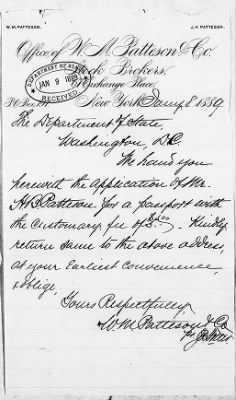 W. M. PATTESON. J. F. PATTESON.
Office of W. M. Patteson & Co.
Stock Brokers,
Exchange Place,
DEPARTMENT OF STATE
JAN 9 1889
RECEIVED
P.O. Box New York Jany 8 1889
The Department of State,
Washington, D.C.
We hand you
herewith the application of Mr.
H B Patteson for a passport with
the customary fee of Kindly
return same to the above address,
at your Earliest Convenience,
& oblige,
Yours Respectfully,
W M Patteson & Co